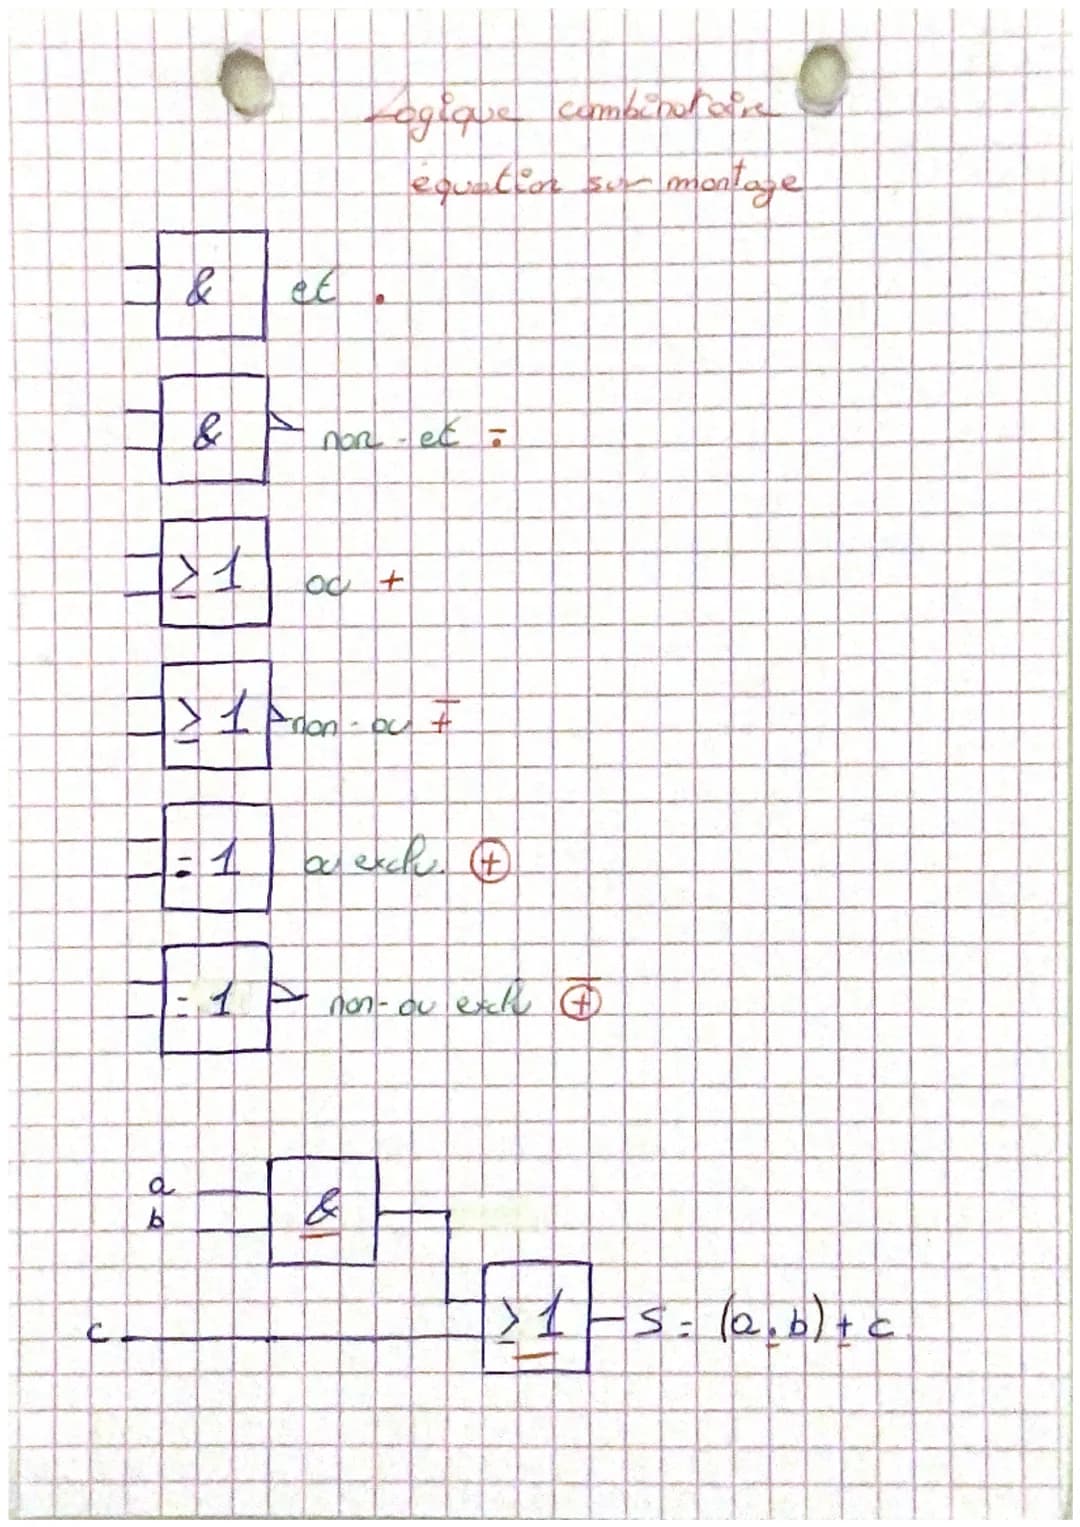 Logique combinatoire
équation sur montage
& et .
& non-et ∸
≥1 ou +
≥1 non-ou +̅
=1 ou exclu. ⊕
=1 non-ou exclu ⊕̅
a
b
&
c
≥1 S = (a.b)+c